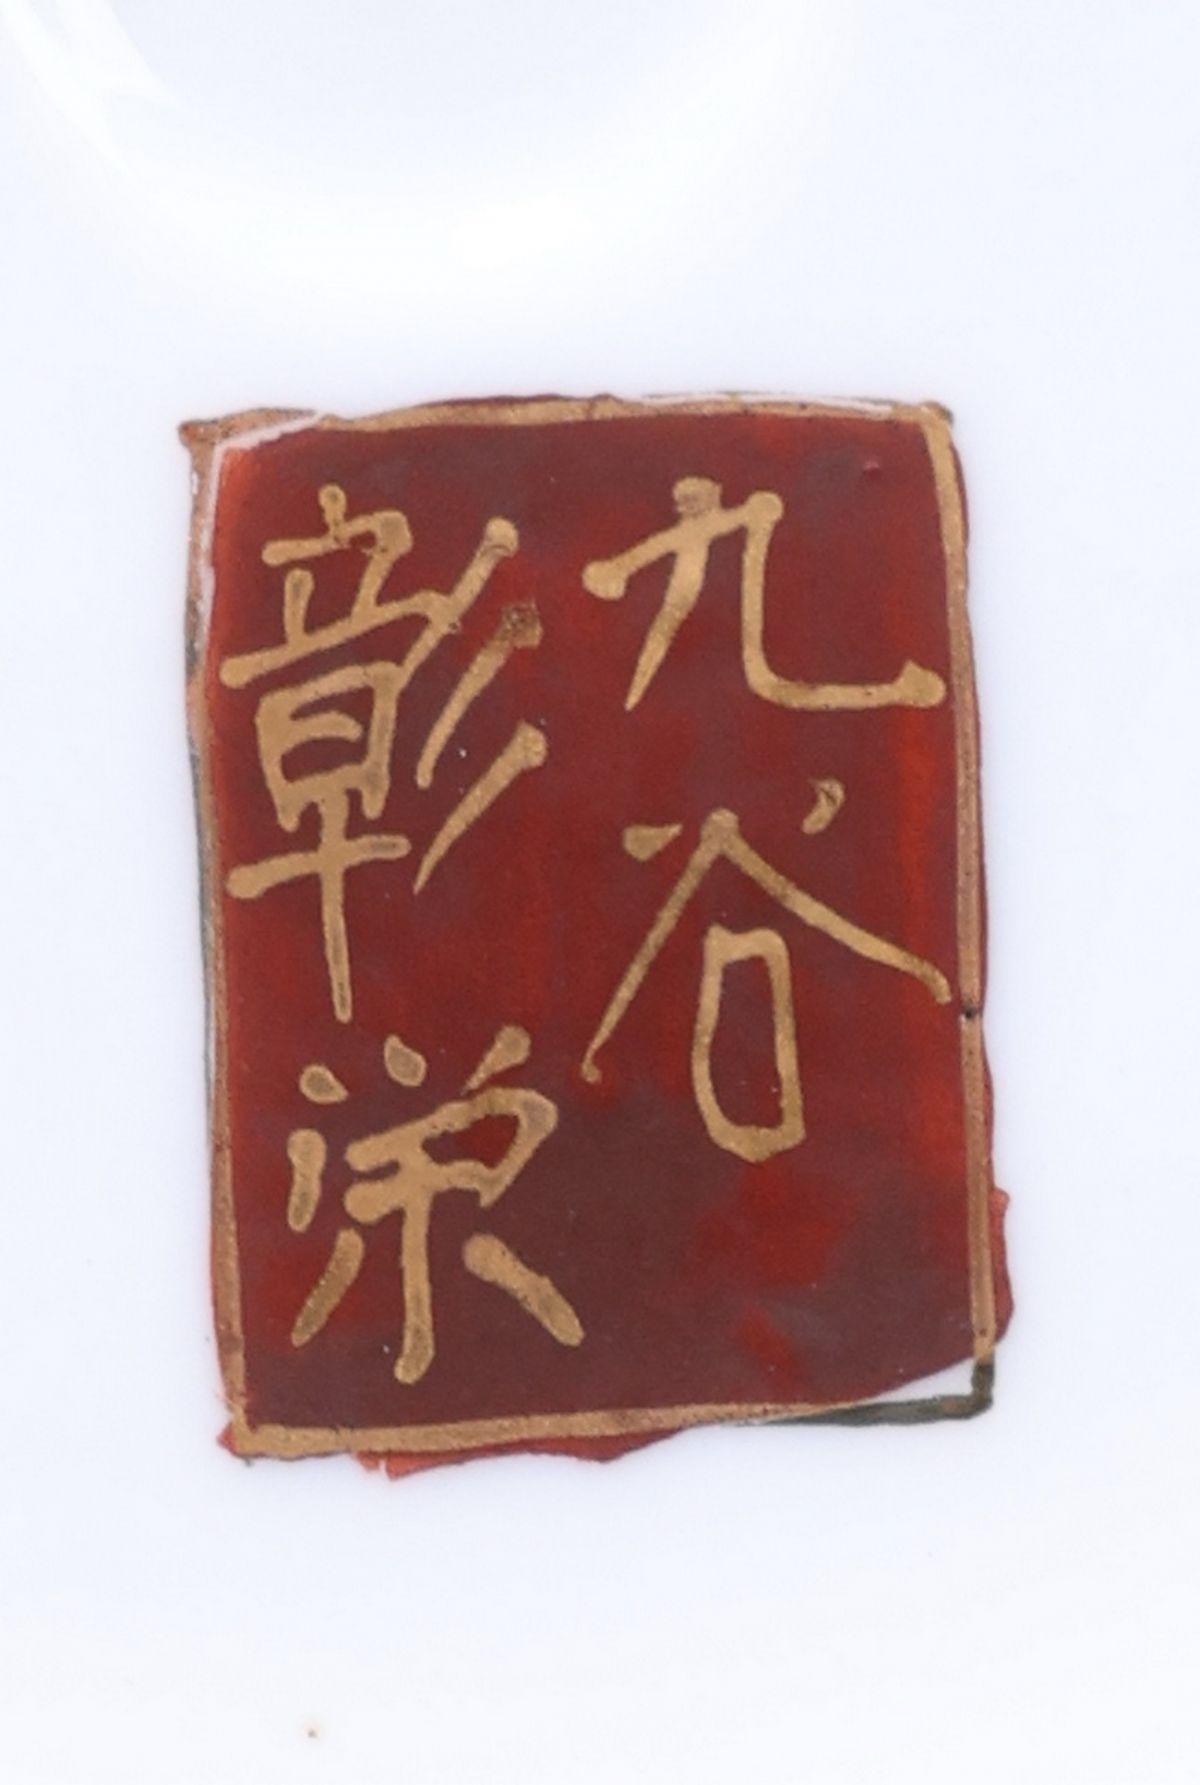 九谷
彰栄